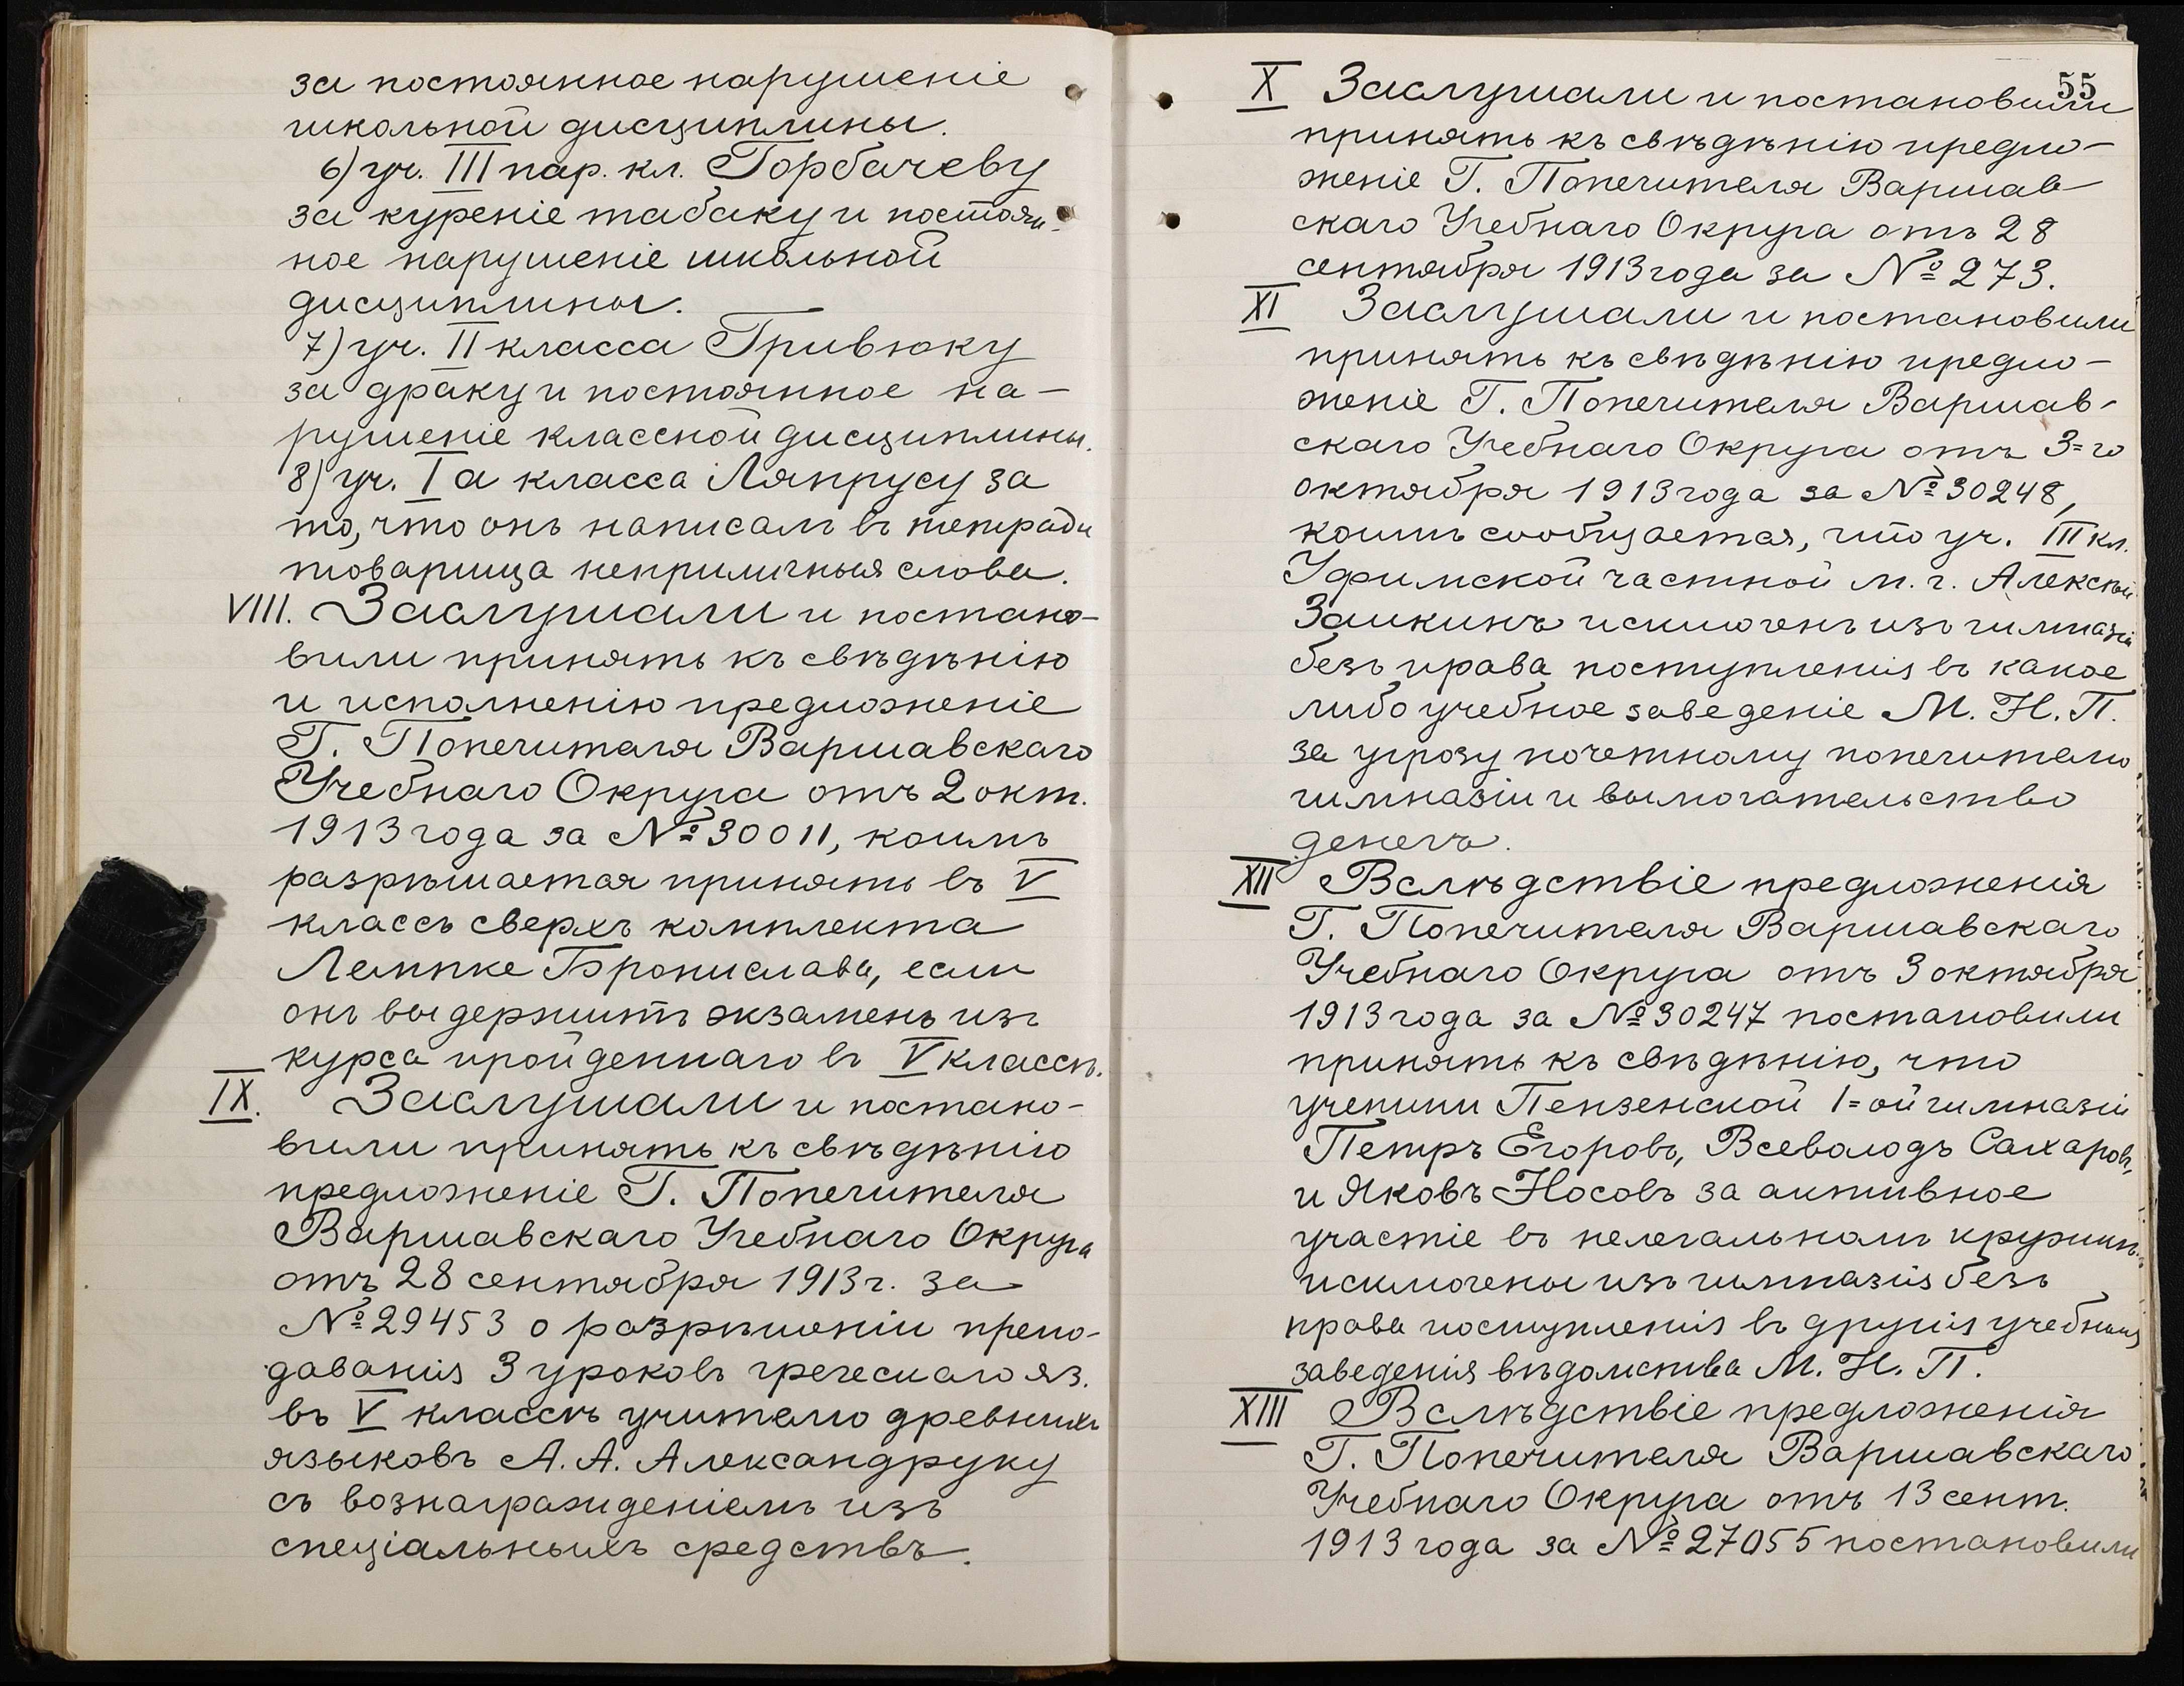 за постоянное нарушеніе
школьной дисциплины.
6) уч. III пар. кл. Горбачеву
за куреніе табаку и постоян-
ное нарушеніе школьной
дисциплины.
7) уч. II класса Гривюку
за драку и постоянное на-
рушеніе классной дисциплины.
8) уч. I а класса Ляпрусу за
то, что онъ написалъ въ тетради
товарища неприличныя слова.
VIII. Заслушали и постано-
вили принять къ свѣдѣнію
и исполненію предложеніе
Г. Попечителя Варшавскаго
Учебнаго Округа отъ 2 окт.
1913 года за № 30011, коимъ
разрѣшается принять въ V
классъ сверхъ комплекта
Лемпке Бронислава, если
онъ выдержитъ экзаменъ изъ
курса пройденнаго въ V классѣ.
IX. Заслушали и постано-
вили принять къ свѣдѣнію
предложеніе Г. Попечителя
Варшавскаго Учебнаго Округа
отъ 28 сентября 1913 г. за
№ 29453 о разрѣшеніи препо-
даванія 3 уроковъ греческаго яз.
въ V классѣ учителю древнихъ
языковъ А. А. Александруку
съ вознагражденіемъ изъ
спеціальныхъ средствъ.
55
X Заслушали и постановили
принять къ свѣдѣнію предло-
женіе Г. Попечителя Варшав-
скаго Учебнаго Округа отъ 28
сентября 1913 года за № 273.
XI Заслушали и постановили
принять къ свѣдѣнію предло-
женіе Г. Попечителя Варшав-
скаго Учебнаго Округа отъ 3=го
октября 1913 года за № 30248,
коимъ сообщается, что уч. III кл.
Уфимской частной м. г. Алексѣй
Заикинъ исключенъ изъ гимназіи
безъ права поступленія въ какое
либо учебное заведеніе М. Н. П.
за угрозу почетному попечителю
гимназіи и вымогательство
денегъ.
XII Вслѣдствіе предложенія
Г. Попечителя Варшавскаго
Учебнаго Округа отъ 3 октября
1913 года за № 30247 постановили
принять къ свѣдѣнію, что
ученики Пензенской 1=ой гимназіи
Петръ Егоровъ, Всеволодъ Сахаровъ,
и Яковъ Носовъ за активное
участіе въ нелегальномъ кружкѣ
исключены изъ гимназіи безъ
права поступленія въ другія учебныя
заведенія вѣдомства М. Н. П.
XIII Вслѣдствіе предложенія
Г. Попечителя Варшавскаго
Учебнаго Округа отъ 13 сент.
1913 года за № 27055 постановили